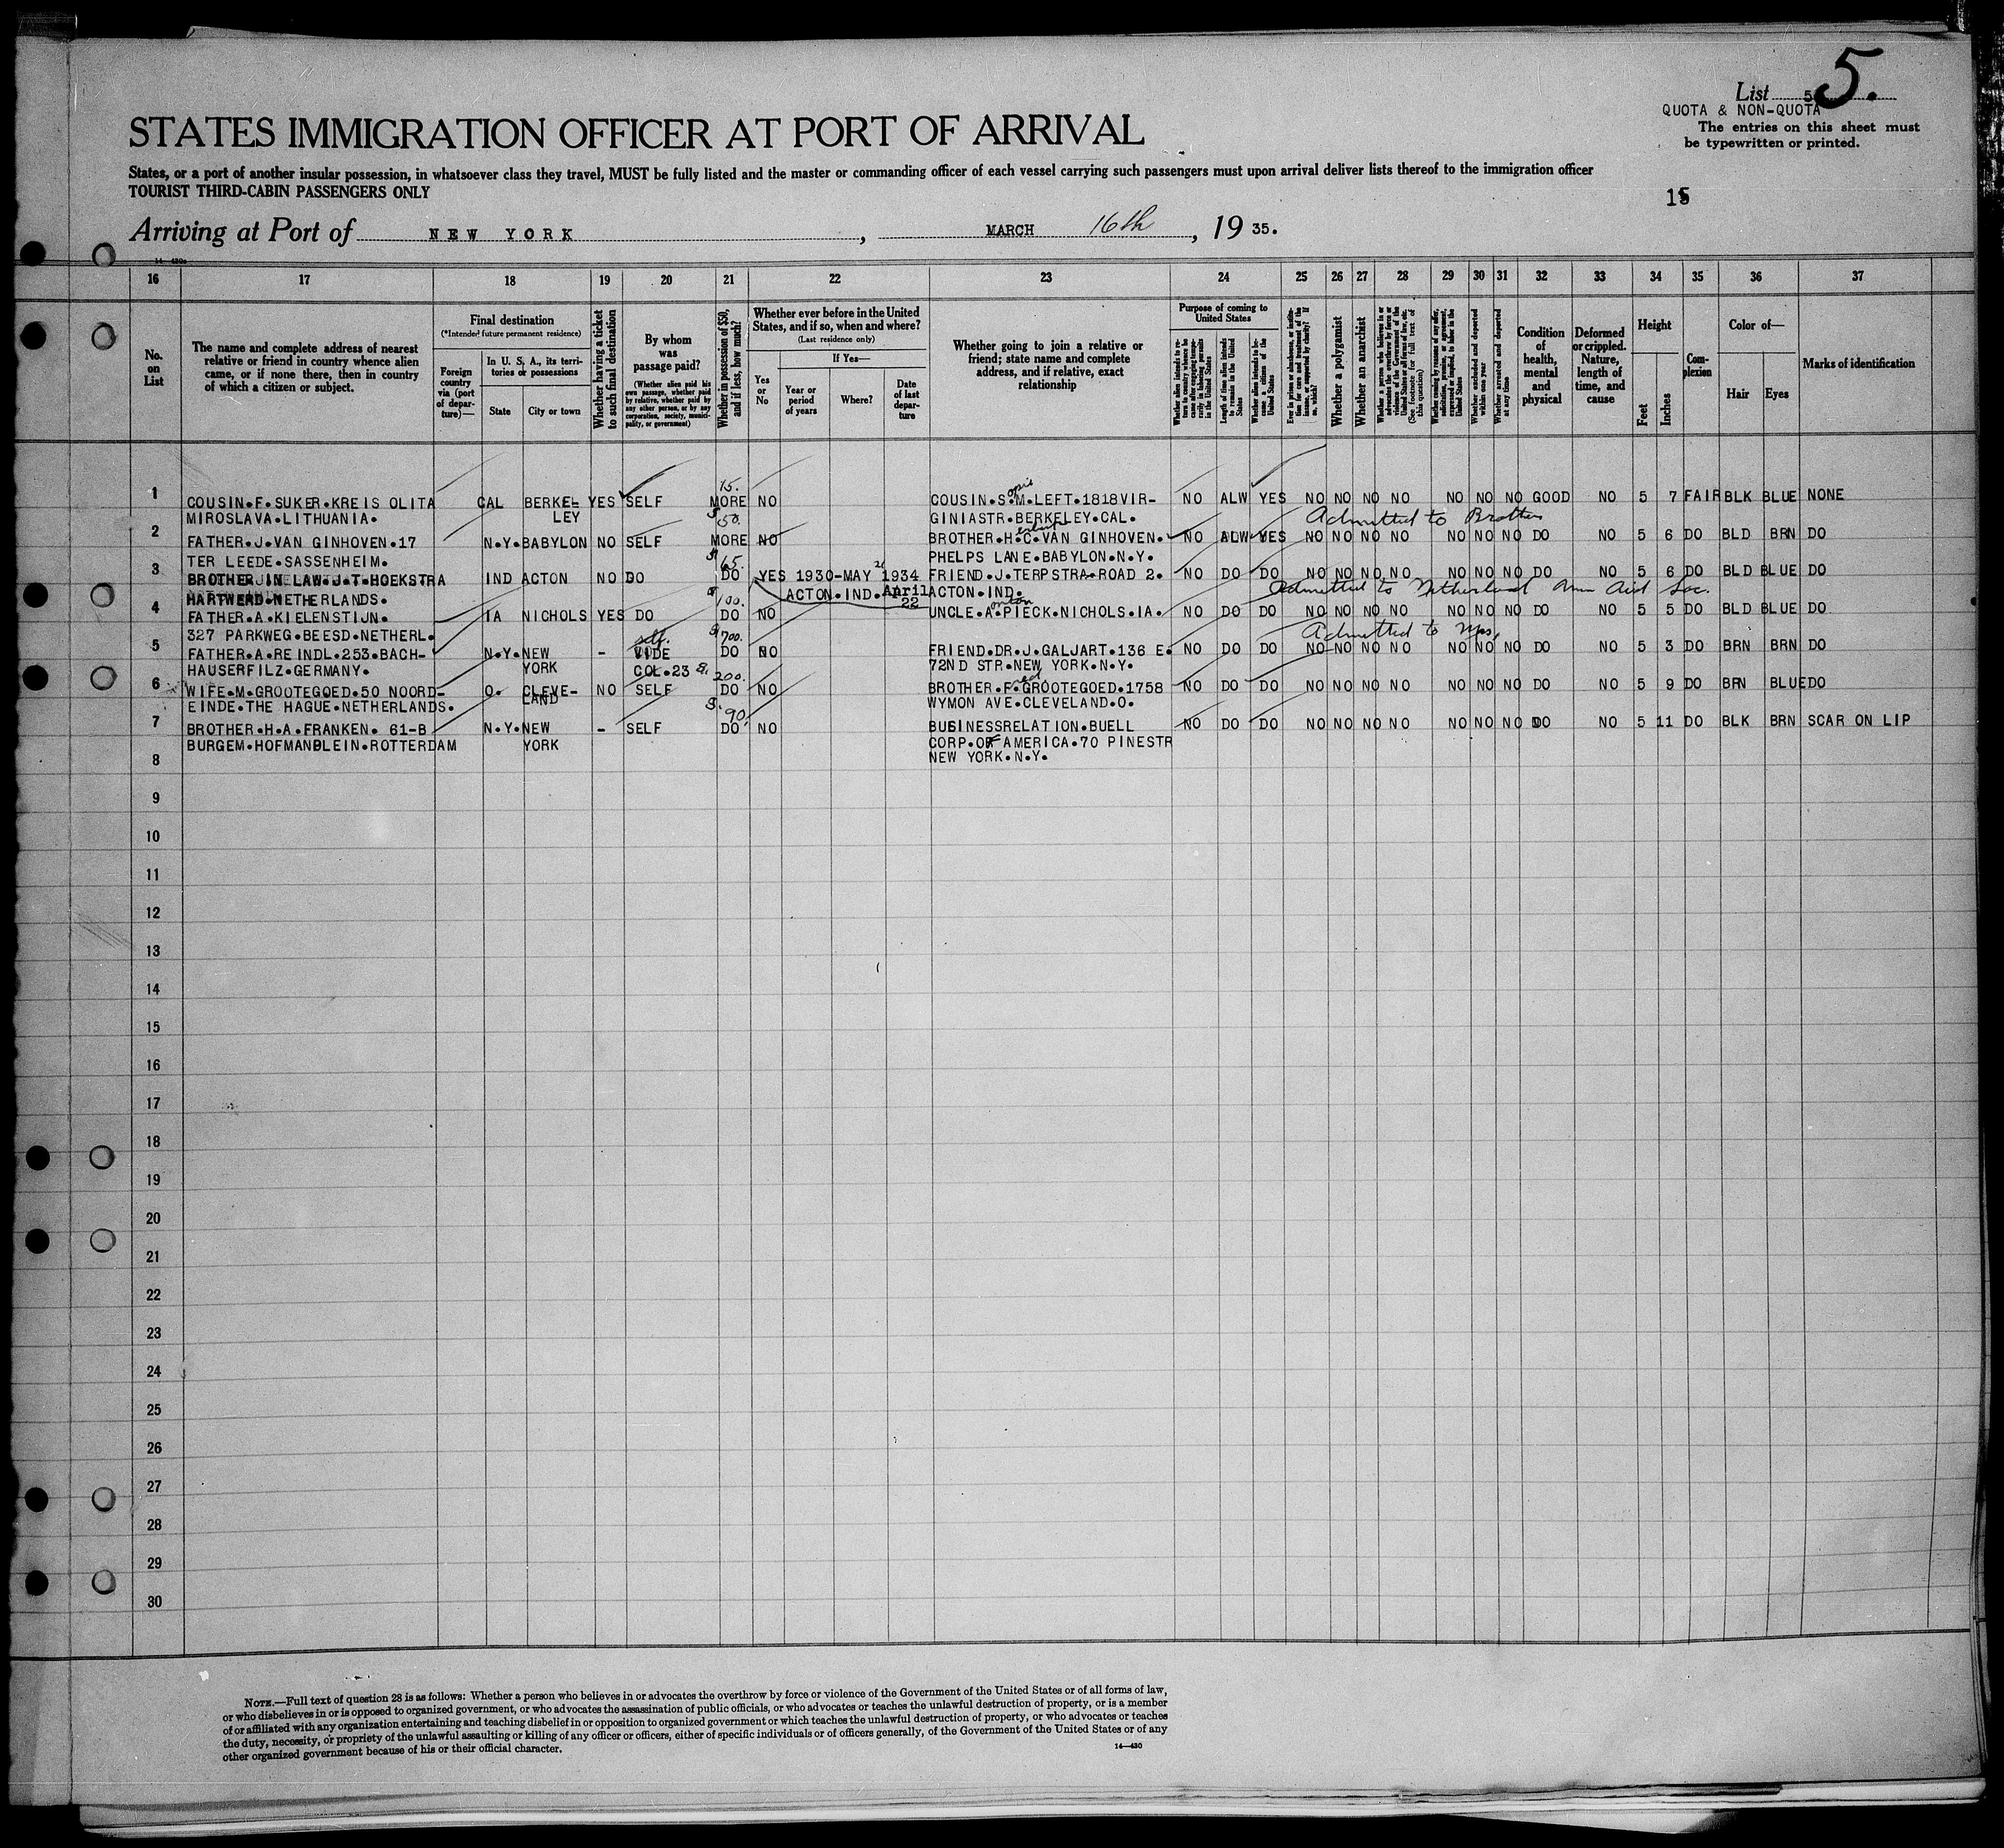 List 5 5.
QUOTA & NON-QUOTA
The entries on this sheet must
be typewritten or printed.
STATES IMMIGRATION OFFICER AT PORT OF ARRIVAL
States, or a port of another insular possession, in whatsoever class they travel, MUST be fully listed and the master or commanding officer of each vessel carrying such passengers must upon arrival deliver lists thereof to the immigration officer
TOURIST THIRD-CABIN PASSENGERS ONLY
15
Arriving at Port of NEW YORK, MARCH 16th, 19 35.
16 17 18 19 20 21 22 23 24 25 26 27 28 29 30 31 32 33 34 35 36 37
No. on List
The name and complete address of nearest relative or friend in country whence alien came, or if none there, then in country of which a citizen or subject.
Final destination
(*Intended future permanent residence)
Foreign country via (port of departure)—
In U. S. A., its territories or possessions
State
City or town
Whether having a ticket to such final destination
By whom was passage paid?
(Whether alien paid his own passage, whether paid by relative, whether paid by any other person, or by any corporation, society, municipality, or government)
Whether in possession of $50, and if less, how much?
Whether ever before in the United States, and if so, when and where?
(Last residence only)
Yes or No
If Yes—
Year or period of years
Where?
Date of last departure
Whether going to join a relative or friend; state name and complete address, and if relative, exact relationship
Purpose of coming to United States
Length of time alien intends to remain in the United States
Whether alien intends to become a citizen of the United States
Whether a polygamist
Whether an anarchist
(See footnote for full text of this question)
Whether excluded and deported within one year
Whether arrested and deported at any time
Condition of health, mental and physical
Deformed or crippled. Nature, length of time, and cause
Height
Feet
Inches
Complexion
Color of—
Hair
Eyes
Marks of identification
15.
1 COUSIN.F.SUKER.KREIS OLITA CAL BERKEL YES SELF MORE NO COUSIN.S.M.LEFT.1818VIR- NO ALW YES NO NO NO NO NO NO NO GOOD NO 5 7 FAIR BLK BLUE NONE
MIROSLAVA.LITHUANIA. LEY GINIASTR.BERKELEY.CAL. Admitted to Brother
50.
2 FATHER.J.VAN GINHOVEN.17 N.Y. BABYLON NO SELF MORE NO BROTHER.H.C.VAN GINHOVEN. NO ALW YES NO NO NO NO NO NO NO DO NO 5 6 DO BLD BRN DO
TER LEEDE.SASSENHEIM. PHELPS LANE.BABYLON.N.Y.
65.
3 BROTHER IN LAW.J.T.HOEKSTRA IND ACTON NO DO DO YES 1930-MAY 1934 FRIEND.J.TERPSTRA.ROAD 2. NO DO DO NO NO NO NO NO NO NO DO NO 5 6 DO BLD BLUE DO
HARTWERD.NETHERLANDS. ACTON.IND. April 22 ACTON.IND. Admitted to Netherland Imm Aid Soc.
100.
4 FATHER.A.KIELENSTIJN. IA NICHOLS YES DO DO NO UNCLE.A.PIECK.NICHOLS.IA. NO DO DO NO NO NO NO NO NO NO DO NO 5 5 DO BLD BLUE DO
327 PARKWEG.BEESD.NETHERL. self. 700. Admitted to
5 FATHER.A.REINDL.253.BACH- N.Y. NEW - VIDE DO NO FRIEND.DR.J.GALJART.136 E. NO DO DO NO NO NO NO NO NO NO DO NO 5 3 DO BRN BRN DO
HAUSERFILZ.GERMANY. YORK COL.23 72ND STR.NEW YORK.N.Y.
200.
6 WIFE.M.GROOTEGOED.50 NOORD- O. CLEVE- NO SELF DO NO BROTHER.F.GROOTEGOED.1758 NO DO DO NO NO NO NO NO NO NO DO NO 5 9 DO BRN BLUE DO
EINDE.THE HAGUE.NETHERLANDS. LAND WYMON AVE.CLEVELAND.O.
90.
7 BROTHER.H.A.FRANKEN. 61-B N.Y. NEW - SELF DO NO BUSINESSRELATION.BUELL NO DO DO NO NO NO NO NO NO NO DO NO 5 11 DO BLK BRN SCAR ON LIP
BURGEM.HOFMANPLEIN.ROTTERDAM YORK CORP.OF AMERICA.70 PINESTR
8 NEW YORK.N.Y.
9
10
11
12
13
14
15
16
17
18
19
20
21
22
23
24
25
26
27
28
29
30
NOTE.—Full text of question 28 is as follows: Whether a person who believes in or advocates the overthrow by force or violence of the Government of the United States or of all forms of law,
or who disbelieves in or is opposed to organized government, or who advocates the assassination of public officials, or who advocates or teaches the unlawful destruction of property, or is a member
of or affiliated with any organization entertaining and teaching disbelief in or opposition to organized government or which teaches the unlawful destruction of property, or who advocates or teaches
the duty, necessity, or propriety of the unlawful assaulting or killing of any officer or officers, either of specific individuals or of officers generally, of the Government of the United States or of any
other organized government because of his or their official character.
14—430